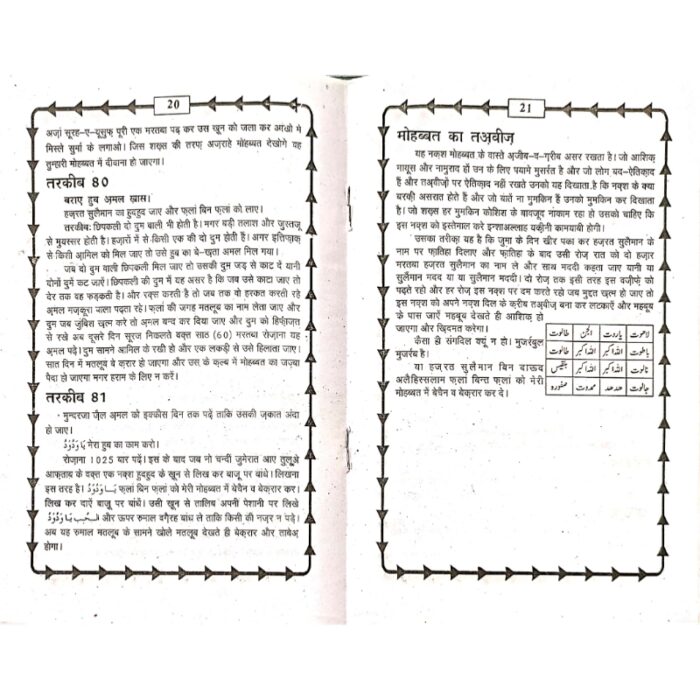 20
अज़ां सूरह-ए-यूसुफ़ पूरी एक मरतबा पढ़ कर उस खून को जला कर आंखो में
मिस्ले सुर्मा के लगाओ। जिस शख़्स की तरफ़ अज़राहे मोहब्बत देखोगे यह
तुम्हारी मोहब्बत में दीवाना हो जाएगा।
तरकीब 80
बराए हुब अ़मल ख़ास।
हज़रत सुलैमान का हुदहुद जाए और फ़लां बिन फ़लां को लाए।
तरकीबः छिपकली दो दुम बाली भी होती है। मगर बड़ी तलाश और जुस्तजू
से मुयस्सर होती है। हज़ारों में से किसी एक की दो दुम होती हैं। अगर इत्तिफ़ाक़
से किसी आ़मिल को मिल जाए तो उसे हुब का बे-ख़ता अ़मल मिल गया।
जब दो दुम वाली छिपकली मिल जाए तो उसकी दुम जड़ से काट दे यानी
दोनों दुमें कट जाएं। छिपकली की दुम में यह असर है कि जब उसे काटा जाए तो
देर तक वह फड़कती है। और रक़्स करती है तो जब तक वो हरकत करती रहे
अ़मल मज़कूरा पाला पढ़ता रहे। फ़लां की जगह मतलूब का नाम लेता जाए और
दुम जब जुंबिश ख़त्म करे तो अ़मल बन्द कर दिया जाए और दुम को हिफ़ाज़त
से रखे अब दूसरे दिन सूरज निकलते वक़्त साठ (60) मरतबा रोज़ाना यह
अ़मल पढ़े। दुम सामने आ़मिल के रखी हो और एक लकड़ी से उसे हिलाता जाए।
सात दिन में मतलूब बे क़रार हो जाएगा और उस के क़ल्ब में मोहब्बत का जज़्बा
पैदा हो जाएगा मगर हराम के लिए न करें।
तरकीब 81
मुन्दरजा ज़ैल अ़मल को इक्कीस दिन तक पढ़ें ताकि उसकी ज़कात अदा
हो जाए।
يَاوَدُوْدُ मेरा हुब का काम करो।
रोज़ाना 1025 बार पढ़ें। इस के बाद जब नो चन्दी जुमेरात आए तुलूओ़
आफ़ताब के वक़्त एक नक़्श हुदहुद के खून से लिख कर बाजू पर बांधे। लिखना
इस तरह है। يَاوَدُوْدُ फ़लां बिन फ़लां को मेरी मोहब्बत में बेचैन व बेक़रार कर।
लिख कर दाएं बाजू पर बांधें। उसी खून से तालिब अपनी पेशानी पर लिखे
يَاوَدُوْدُ और ऊपर रुमाल वग़ैरह बांध ले ताकि किसी की नज़र न पड़े।
अब यह रुमाल मतलूब के सामने खोले मतलूब देखते ही बेक़रार और ताबेअ़
होगा।
21
मोहब्बत का तअ़वीज़
यह नक़्श मोहब्बत के वास्ते अ़जीब-व-ग़रीब असर रखता है। जो आशिक़
मायूस और नामुराद हों उन के लिए पयामे मुसर्रत है और जो लोग बद-ऐतिक़ाद
हैं और तअ़वीज़ों पर ऐतिक़ाद नहीं रखते उनको यह दिखाता है कि नक़्श के क्या
असरात होते हैं और जो बातें ना गुमकिन हैं उनको मुमकिन कर दिखाता
है। जो शख़्स हर गुमकिन कोशिश के बावजूद नाकाम रहा हो उसको चाहिए कि
इस नक़्श को इस्तेमाल करे इन्शाअल्लाह यक़ीनी कामयाबी होगी।
उसका तरीक़ा यह है कि जुमा के दिन खीर पका कर हज़रत सुलैमान के
नाम पर फ़ातिहा दिलाए और फ़ातिहा के बाद उसी रोज़ रात को दो हज़ार
मरतबा हज़रत सुलैमान का नाम ले और साथ मददी कहता जाए यानी या
सुलैमान मदद या या सुलैमान मददी। दो रोज़ तक इसी तरह इस वज़ीफ़े को
पढ़ते रहो और हर रोज़ इस नक़्श पर दम करते रहो जब मुद्दत ख़त्म हो जाए तो
इस नक़्श को अपने नक़्श दिल के क़रीब तअ़वीज़ बना कर लटकाऐं और महबूब
के पास जाऐं महबूब देखते ही आशिक़ हो
जाएगा और ख़िदमत करेगा।
कैसा ही संगदिल क्यूं न हो। मुजर्रबुल
मुजर्रब है।
या हज़रत सुलैमान बिन दाऊद
अ़लैहिस्सलाम फ़लां बिन्त फ़लां को मेरी
मोहब्बत में बेचैन व बेक़रार कर दे।
لاهوت ياروت طالوت
اللہ اکبر اللہ اکبر طالوت
اللہ اکبر اللہ اکبر بلقیس
جالوت هدهد صفورہ